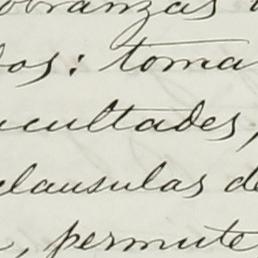 obranzas
dos: toma
acultades,
clausulas de
, permute